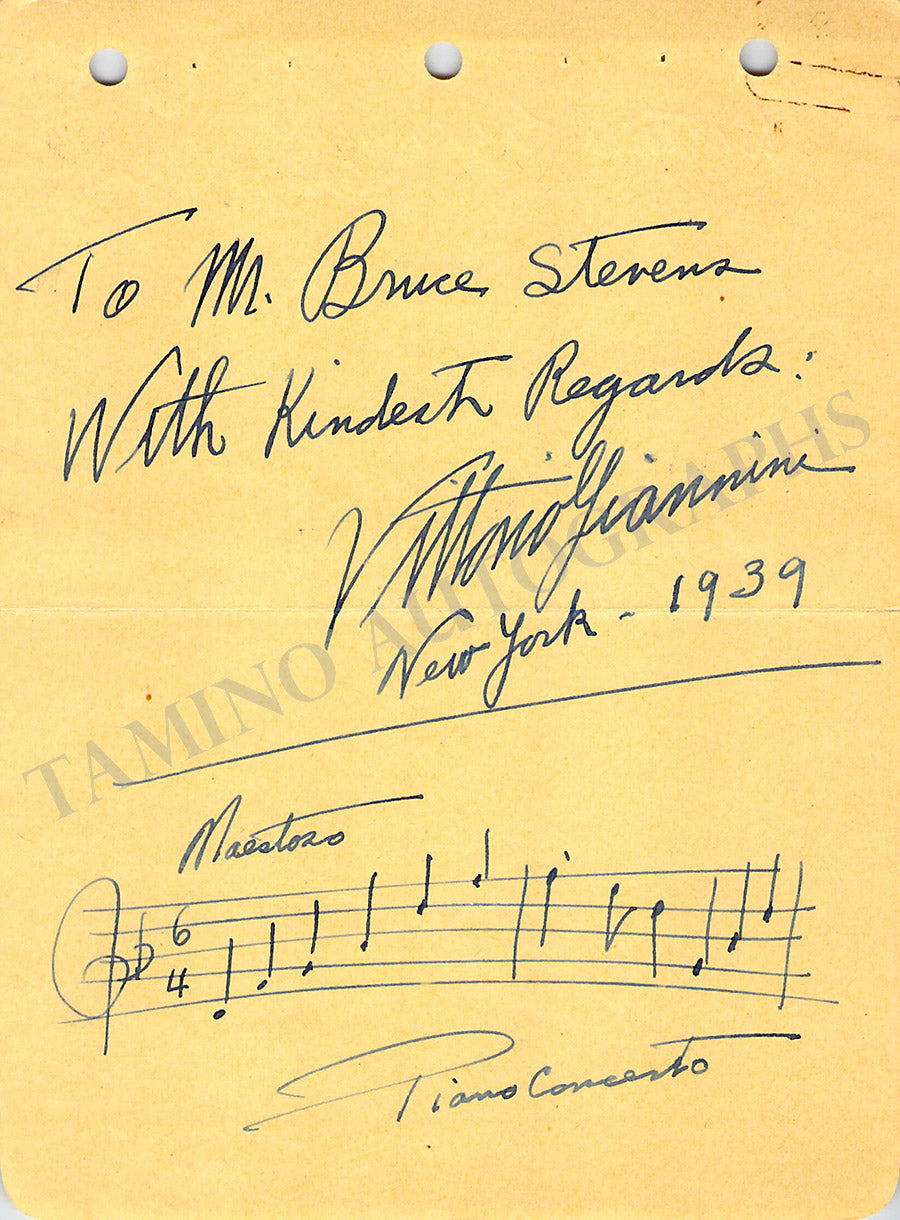 To Mr. Bruce Stevens
With Kindest Regards:
Vittorio Giannini
New York - 1939
TAMINO AUTOGRAPHS
Maestoso
6
4
Piano Concerto